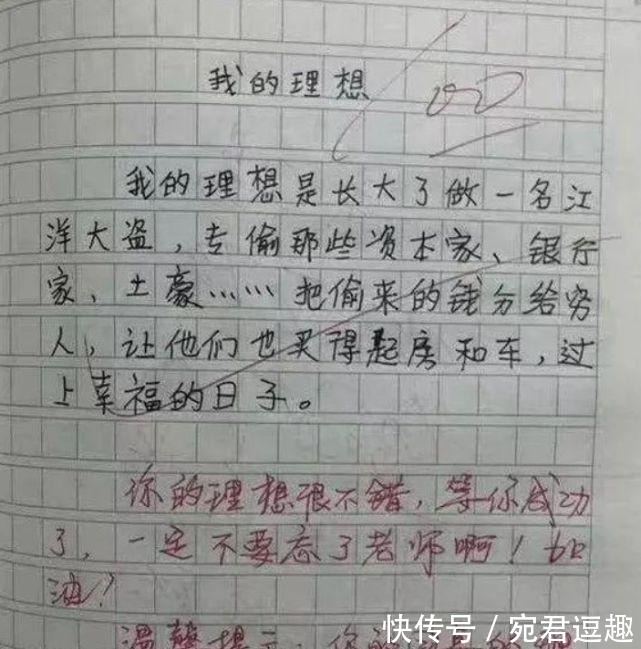 我的理想
我的理想是长大了做一名江
洋大盗,专偷那些资本家、银行
家、土豪……把偷来的钱分给穷
人,让他们也买得起房和车,过
上幸福的日子。
你的理想很不错,等你成功
了,一定不要忘了老师啊!加
油!
温馨提示:你
快传号/宛君逗趣